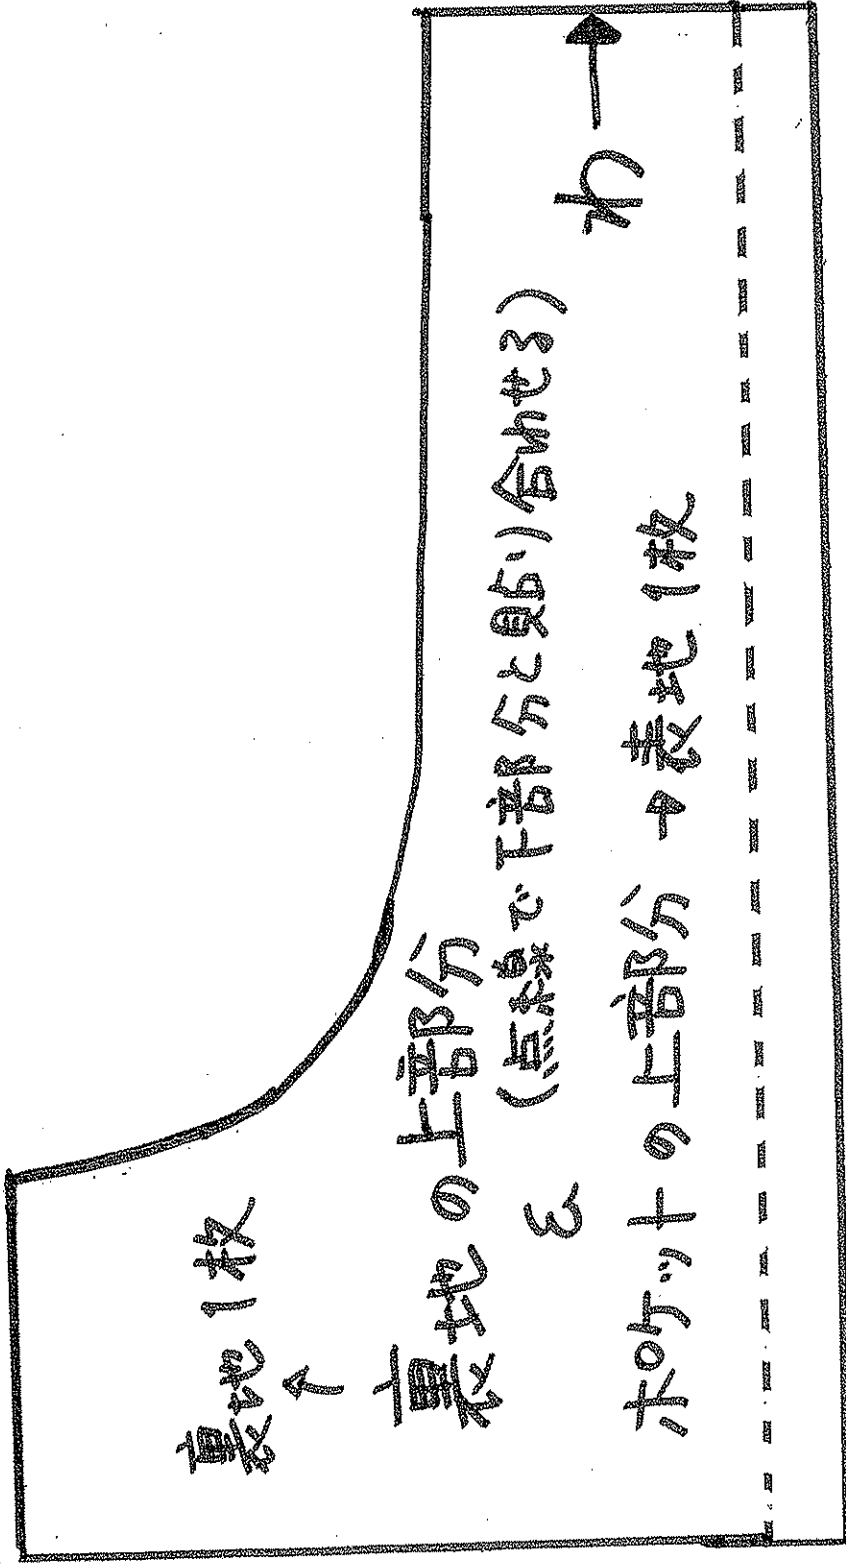 裏地1枚
↑
裏地の上部分
(点線で下部分と貼り合わせる)
&
ポケットの上部分 → 表地1枚
わ →